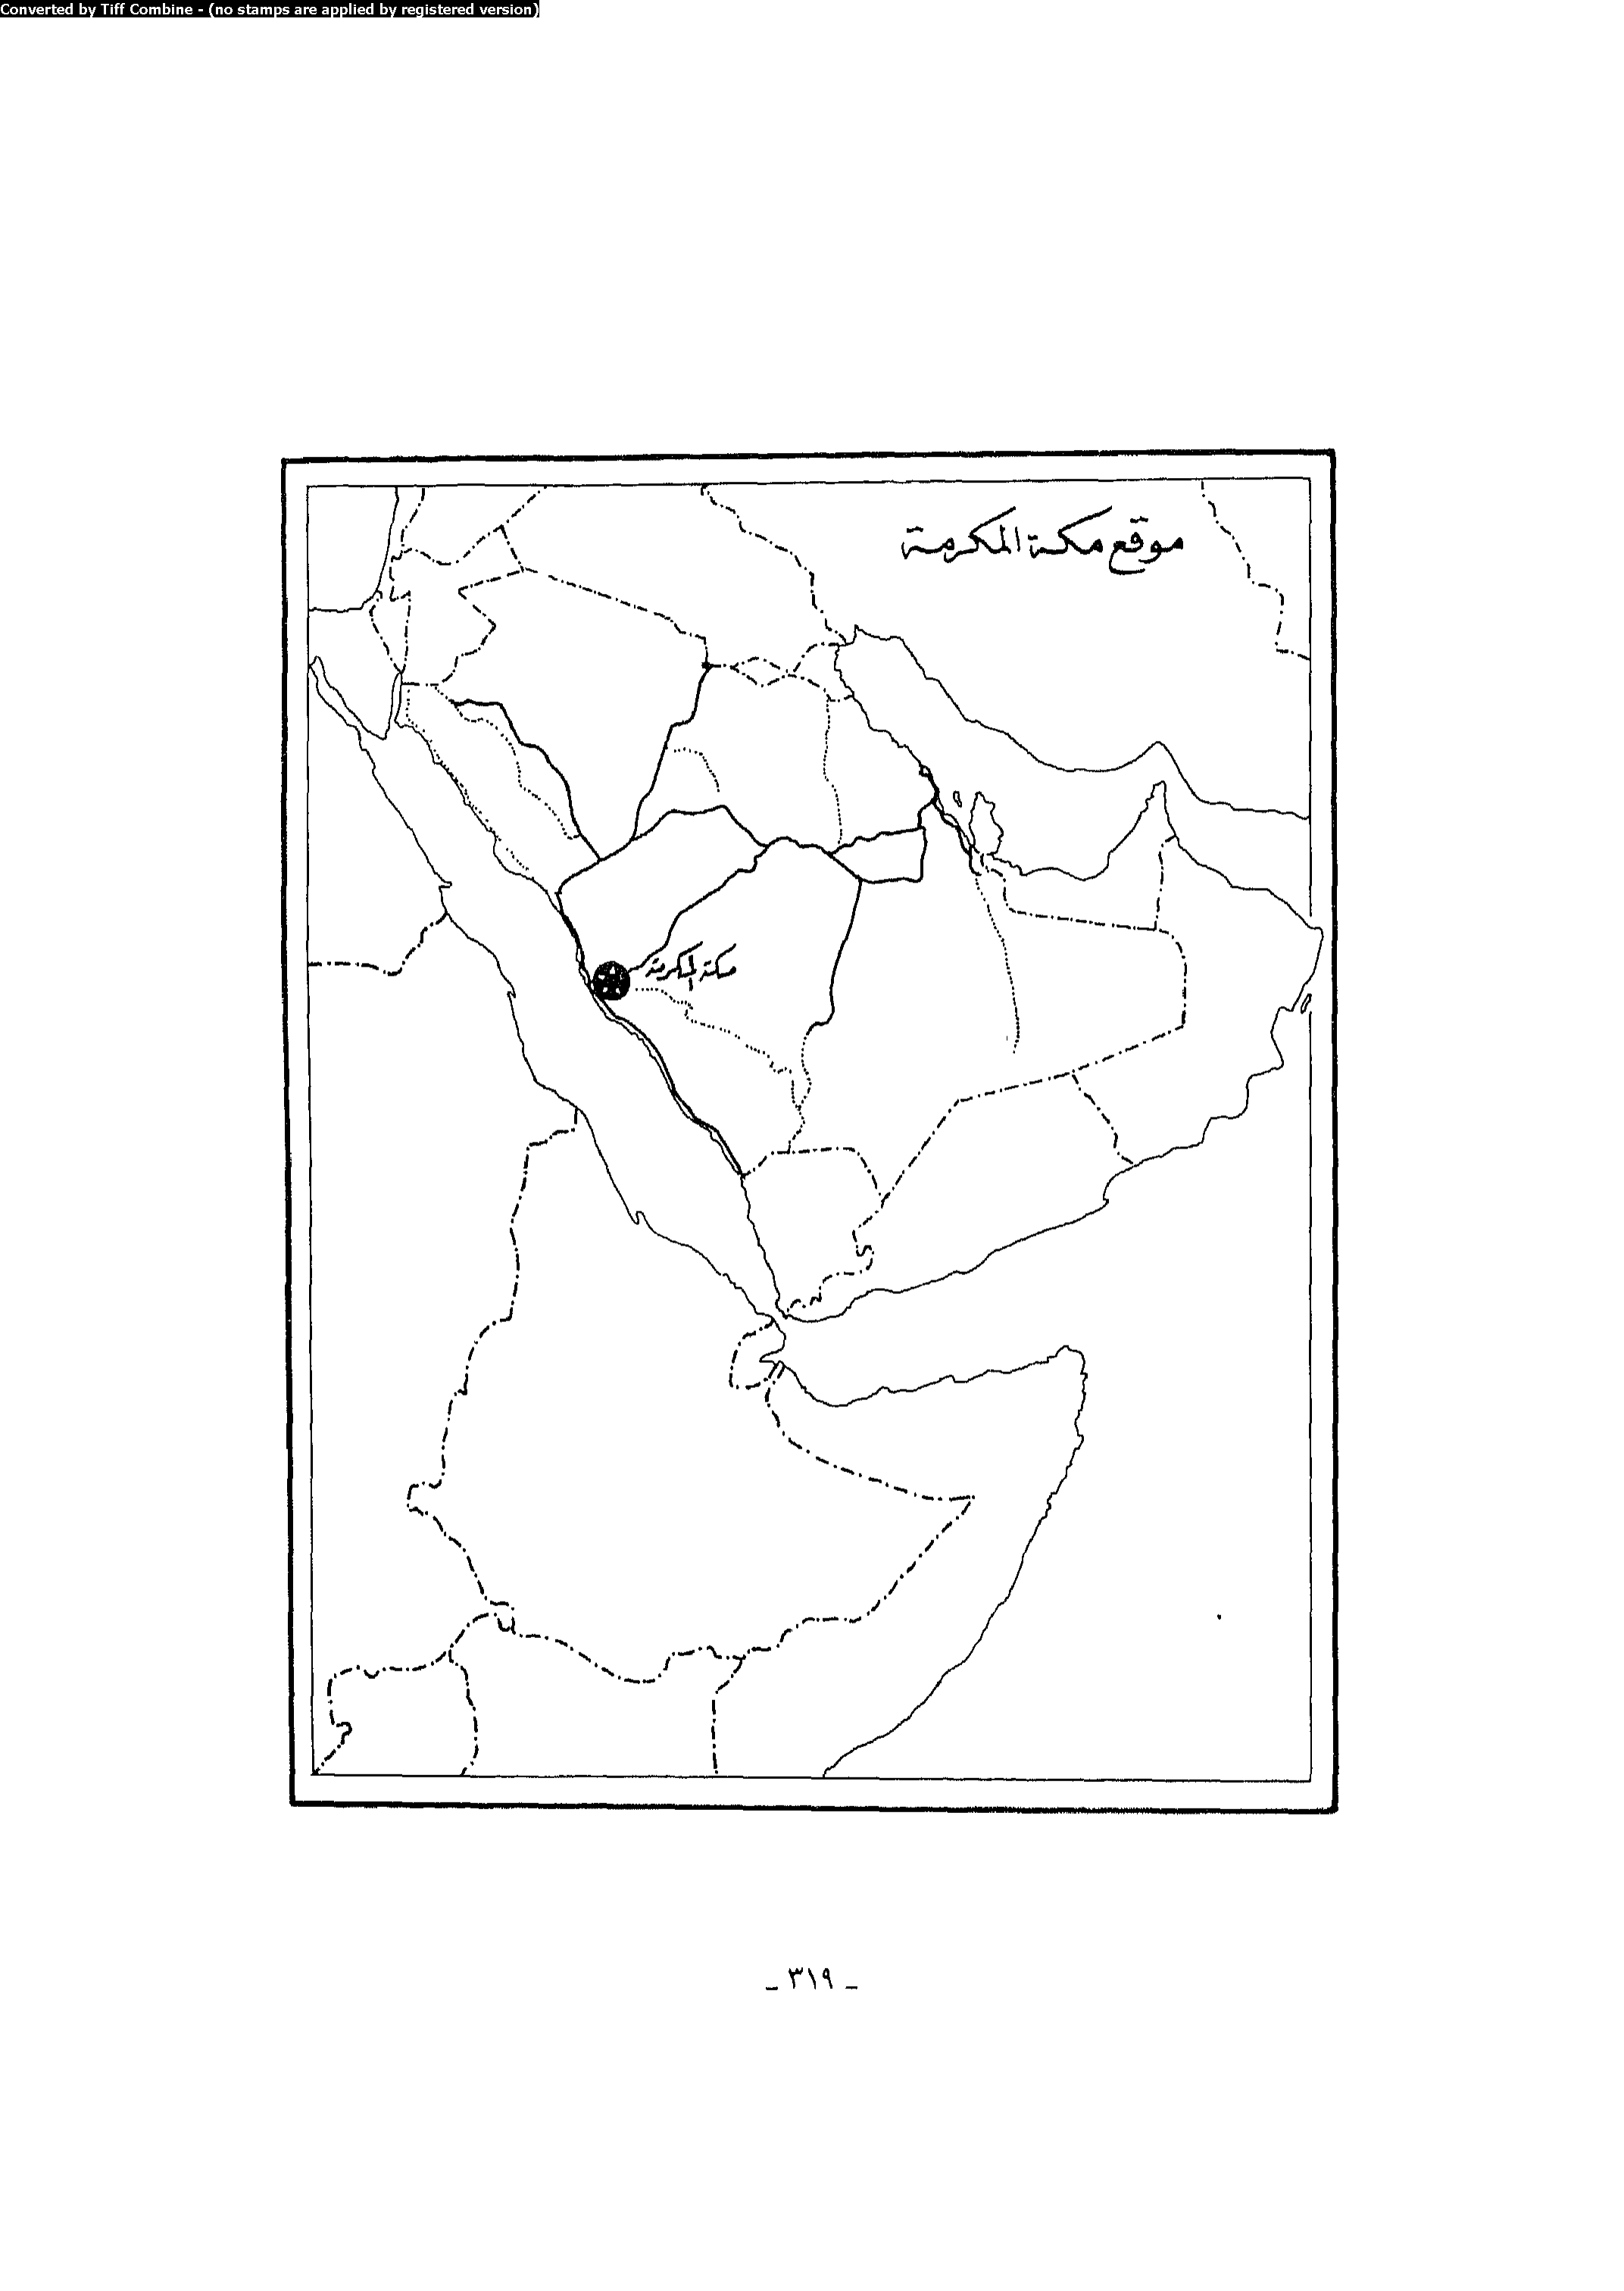 Converted by Tiff Combine - (no stamps are applied by registered version)
موقع مكة المكرمة
مكة المكرمة
- ٣١٩ -